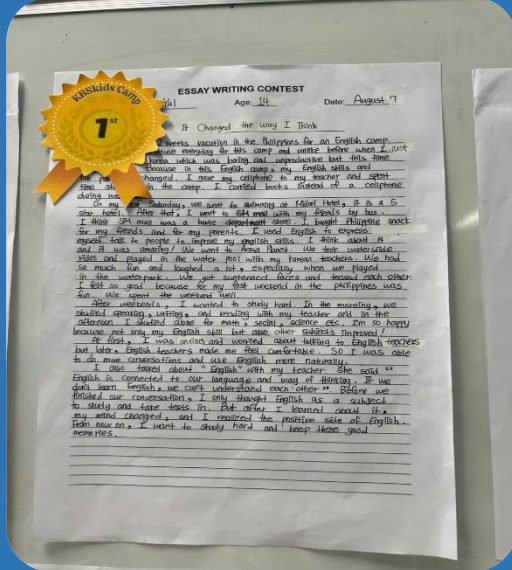 KBSkids Camp
1st
ESSAY WRITING CONTEST
Age: 14 Date: August 7
It Changed the way I Think
weeks vacation in the Philippines for an English camp.
everyday for this camp and unlike before when I just
Korea which was boring and unproductive but this time
Because in this English camp, my English skills and
changed. I gave my cellphone to my teacher and spent
time in the camp. I carried books instead of a cellphone
during
On my Saturday, we went to swimming at Midori Hotel, it is a 5
star hotel. After that, I went to SM mall with my friends by bus.
I think SM mall was a huge department store. I bought Philippine snack
for my friends and for my parents. I used English to express
myself talk to people to improve my english skills. I think about it
and it was amazing! We went to Aqua Planet. We took waterslide
rides and played in the water pool with my Korean teachers. We had
so much fun and laughed a lot, especially when we played
in the waterpark. We got suntanned faces and teased each other
I felt so good because for my first weekend in the philippines was
fun. We spent the weekend well.
After weekends, I wanted to study hard. In the morning, we
studied speaking, writing, and reading with my teacher and in the
afternoon I studied alone for math, social, science etc. I'm so happy
because not only my English skill but also other subjects improved!
At first, I was anxious and worried about talking to English teachers
but later, English teachers made me feel comfortable. So I was able
to do more conversations and use English more naturally.
I also talked about "English" with my teacher. She said "
English is connected to our language and way of thinking. If we
don't learn English, we can't understand each other". Before we
finished our conversation, I only thought English as a subject
to study and take tests in. But after I learned about it,
my mind changed, and I realized the positive side of English.
From now on, I want to study hard and keep these good
memories.